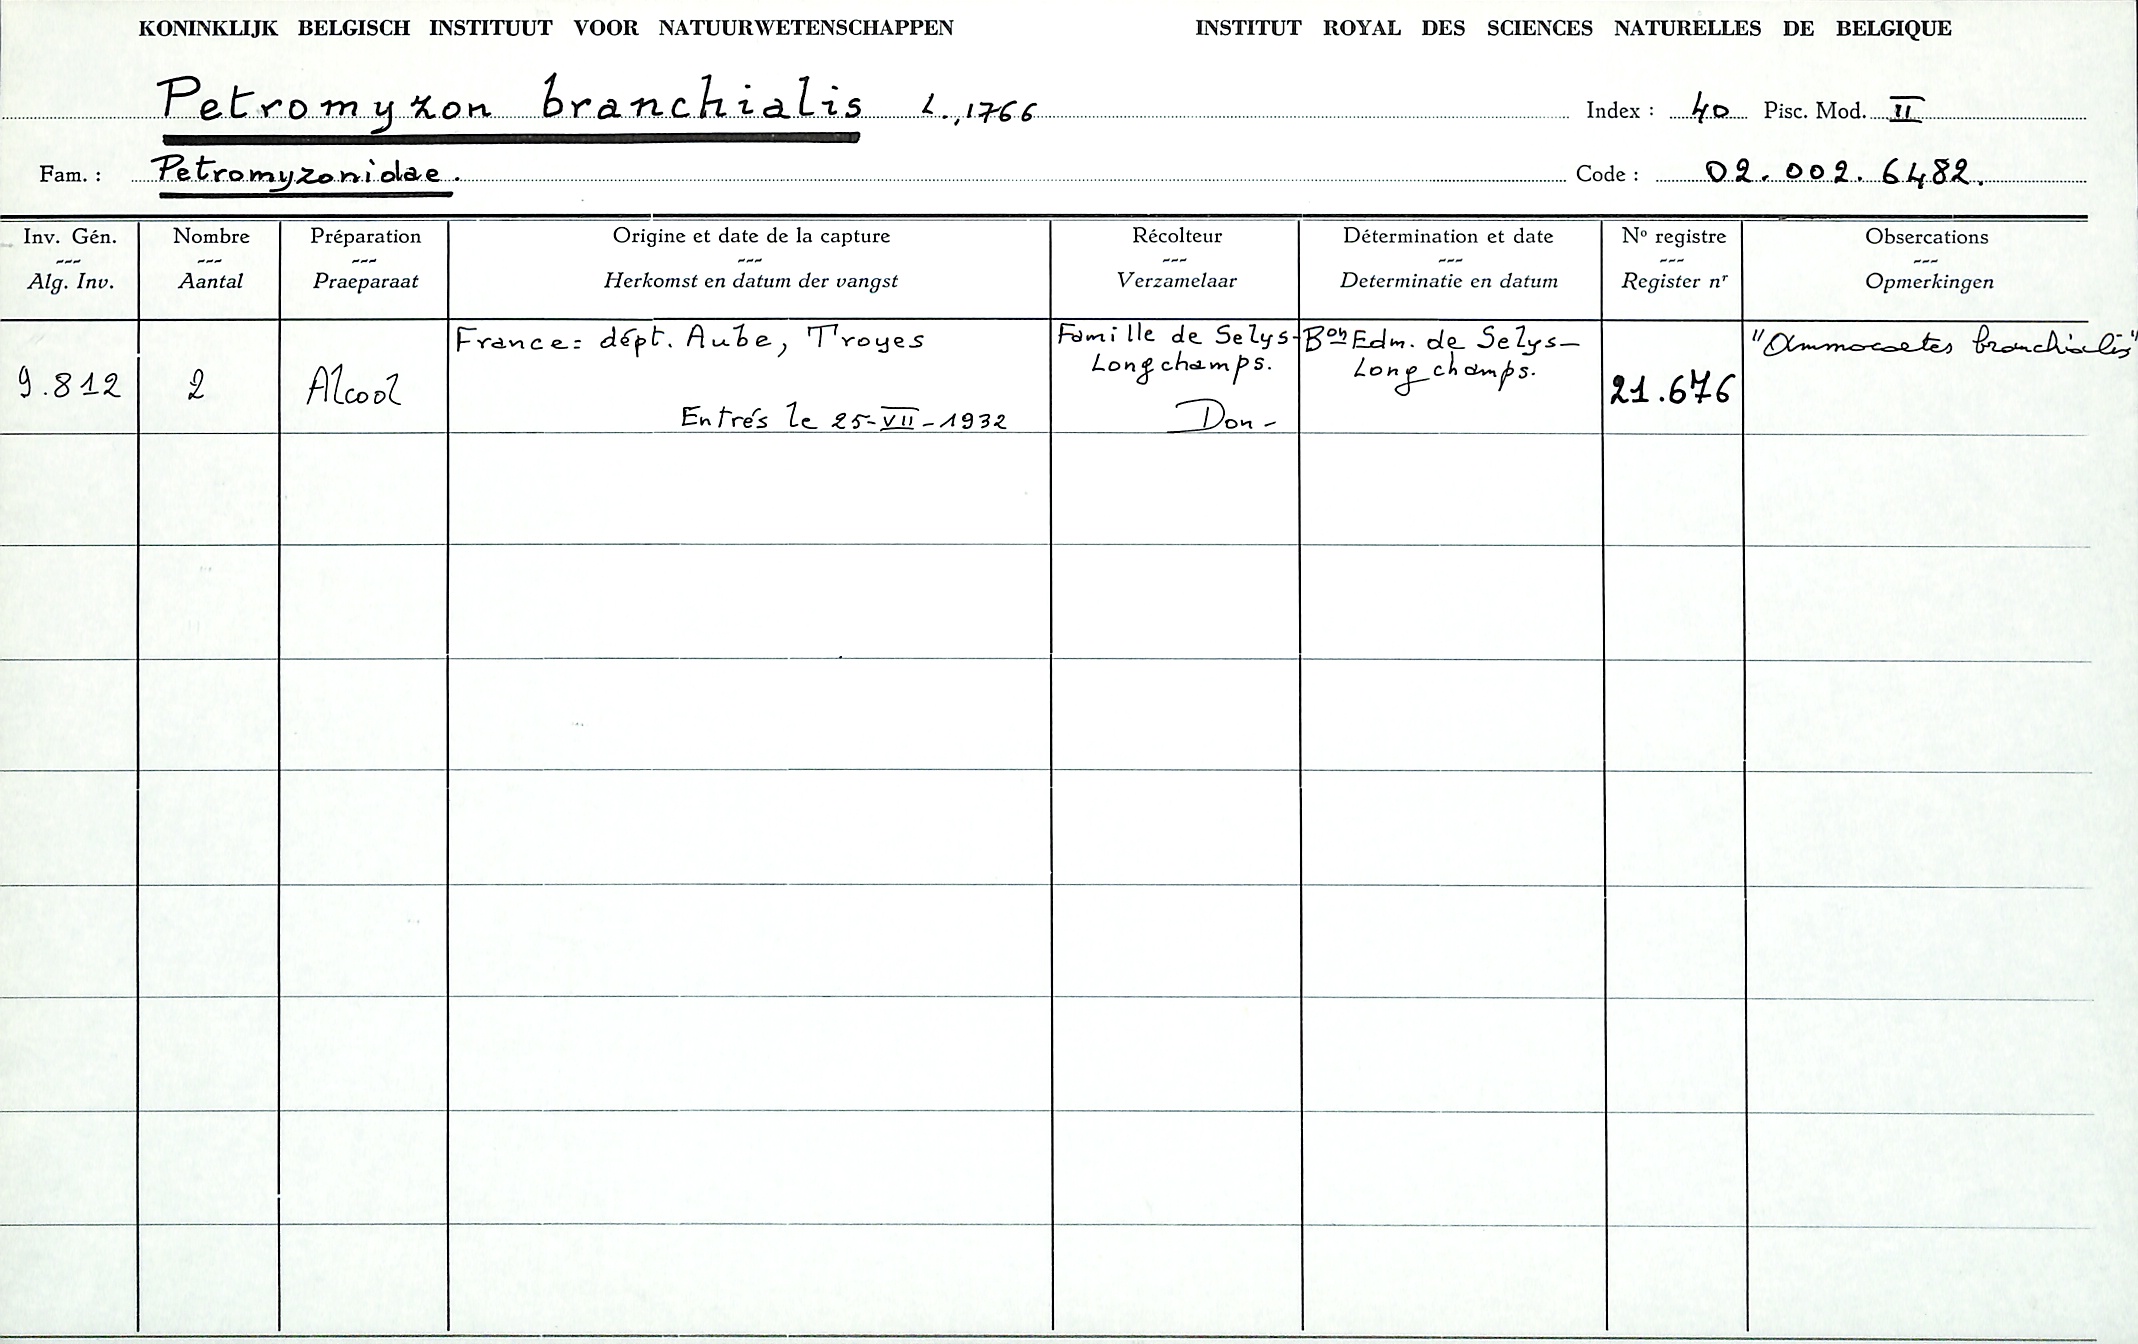 KONINKLIJK BELGISCH INSTITUUT VOOR NATUURWETENSCHAPPEN INSTITUT ROYAL DES SCIENCES NATURELLES DE BELGIQUE
Petromyzon branchialis L., 1766 Index : 40 Pisc. Mod. II
Fam. : Petromyzonidae. Code : 02.002.6482.
Inv. Gén. Nombre Préparation Origine et date de la capture Récolteur Détermination et date Nº registre Obsercations
--- --- --- --- --- --- --- ---
Alg. Inv. Aantal Praeparaat Herkomst en datum der vangst Verzamelaar Determinatie en datum Register nr Opmerkingen
France: dépt. Aube, Troyes Famille de Selys- Bon Edm. de Selys- "Ammocoetes branchialis"
Longchamps. Longchamps.
9.812 2 Alcool 21.676
Entrés le 25-VII-1932 Don-